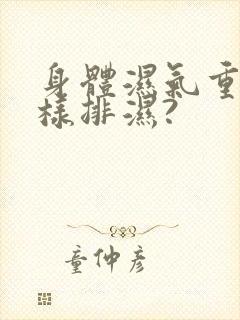 身體濕氣重
樣排濕?
童仲彥